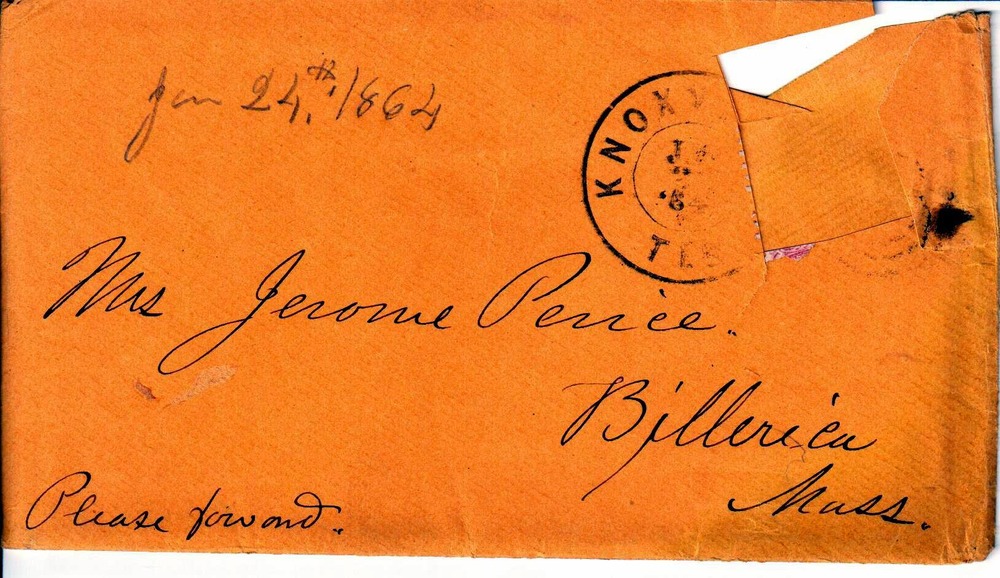 Jan 24th, 1864
KNOXV
JA
'64
TEN
Mrs Jerome Peirce.
Billerica
Mass.
Please forward.